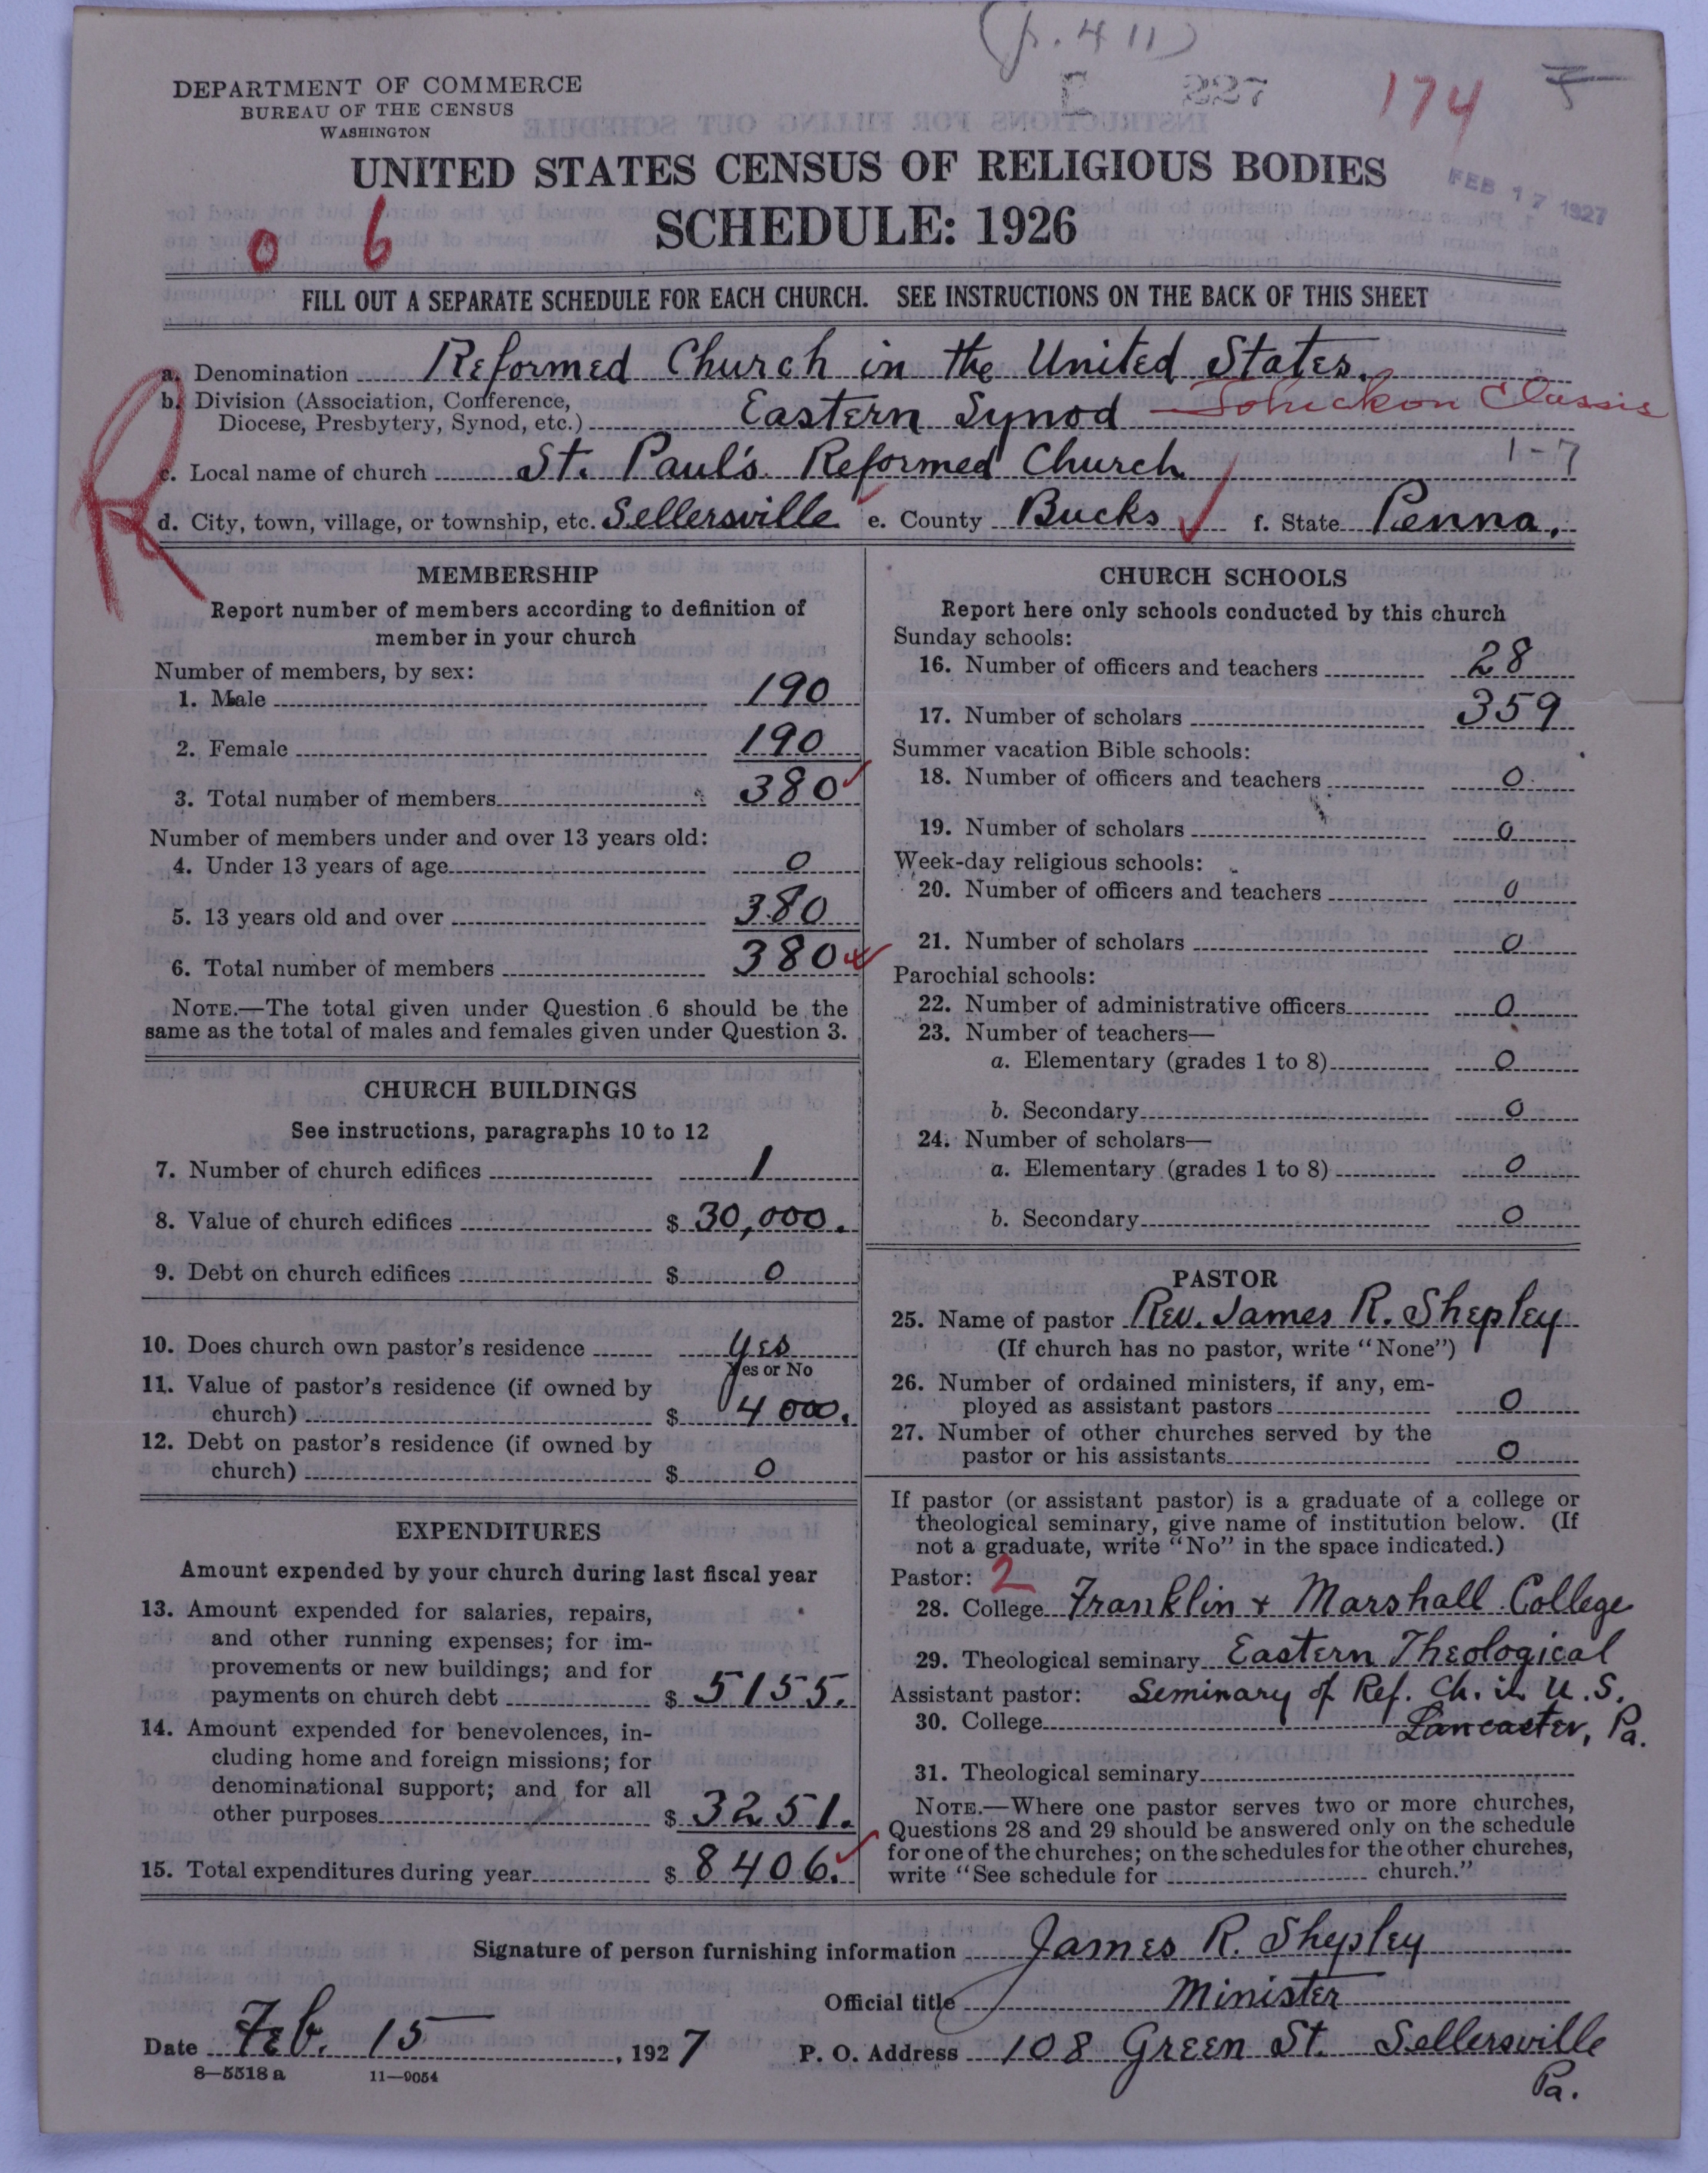 (p. 411)
E 227
174
5
DEPARTMENT OF COMMERCE
BUREAU OF THE CENSUS
WASHINGTON
UNITED STATES CENSUS OF RELIGIOUS BODIES
FEB 17 1927
SCHEDULE: 1926
0 6
FILL OUT A SEPARATE SCHEDULE FOR EACH CHURCH. SEE INSTRUCTIONS ON THE BACK OF THIS SHEET
R
a. Denomination Reformed Church in the United States.
b. Division (Association, Conference,
Diocese, Presbytery, Synod, etc.) Eastern Synod — Tohickon Classis
c. Local name of church St. Paul's Reformed Church 1-7
d. City, town, village, or township, etc. Sellersville e. County Bucks f. State Penna.
MEMBERSHIP
Report number of members according to definition of
member in your church
Number of members, by sex:
1. Male 190
2. Female 190
3. Total number of members 380
Number of members under and over 13 years old:
4. Under 13 years of age 0
5. 13 years old and over 380
6. Total number of members 380
NOTE.—The total given under Question 6 should be the
same as the total of males and females given under Question 3.
CHURCH BUILDINGS
See instructions, paragraphs 10 to 12
7. Number of church edifices 1
8. Value of church edifices $ 30,000.
9. Debt on church edifices $ 0
10. Does church own pastor's residence Yes
Yes or No
11. Value of pastor's residence (if owned by
church) $ 4000.
12. Debt on pastor's residence (if owned by
church) $ 0
EXPENDITURES
Amount expended by your church during last fiscal year
13. Amount expended for salaries, repairs,
and other running expenses; for im-
provements or new buildings; and for
payments on church debt $ 5155.
14. Amount expended for benevolences, in-
cluding home and foreign missions; for
denominational support; and for all
other purposes $ 3251.
15. Total expenditures during year $ 8406.
CHURCH SCHOOLS
Report here only schools conducted by this church
Sunday schools:
16. Number of officers and teachers 28
17. Number of scholars 359
Summer vacation Bible schools:
18. Number of officers and teachers 0
19. Number of scholars 0
Week-day religious schools:
20. Number of officers and teachers 0
21. Number of scholars 0
Parochial schools:
22. Number of administrative officers 0
23. Number of teachers—
a. Elementary (grades 1 to 8) 0
b. Secondary 0
24. Number of scholars—
a. Elementary (grades 1 to 8) 0
b. Secondary 0
PASTOR
25. Name of pastor Rev. James R. Shepley
(If church has no pastor, write "None")
26. Number of ordained ministers, if any, em-
ployed as assistant pastors 0
27. Number of other churches served by the
pastor or his assistants 0
If pastor (or assistant pastor) is a graduate of a college or
theological seminary, give name of institution below. (If
not a graduate, write "No" in the space indicated.)
Pastor: 2
28. College Franklin + Marshall College
29. Theological seminary Eastern Theological
Assistant pastor: Seminary of Ref. Ch. in U.S.
30. College Lancaster, Pa.
31. Theological seminary
NOTE.—Where one pastor serves two or more churches,
Questions 28 and 29 should be answered only on the schedule
for one of the churches; on the schedules for the other churches,
write "See schedule for church."
Signature of person furnishing information James R. Shepley
Official title Minister
Date Feb. 15, 1927 P. O. Address 108 Green St. Sellersville
Pa.
8—5518 a 11—9054